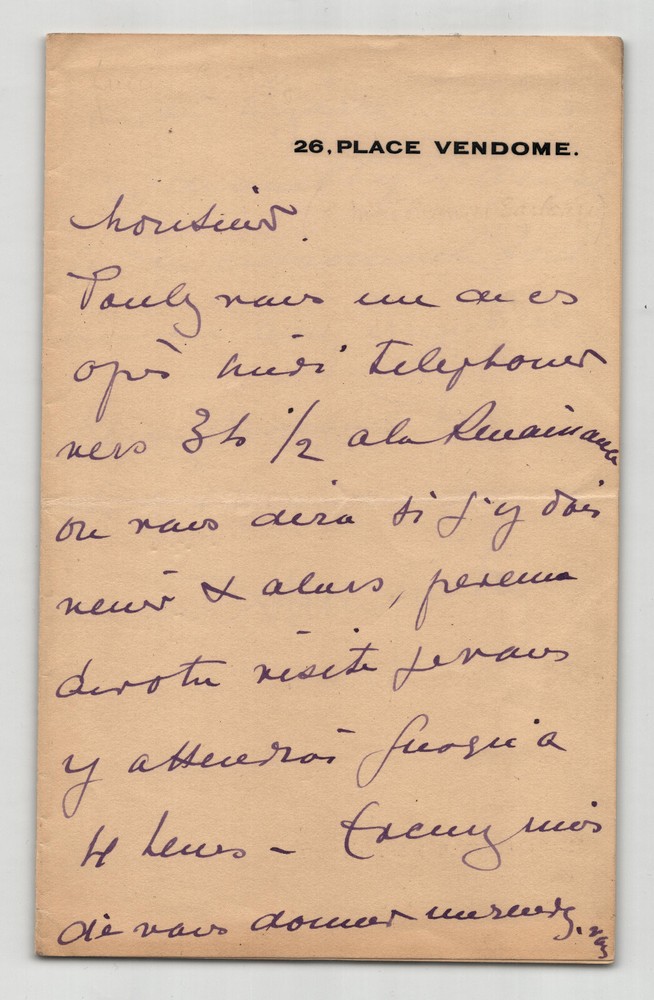 26, PLACE VENDOME.
Monsieur.
Voulez vous un de ces
après midi telephoner
vers 3h 1/2 a la Renaissance
on vous dira si j'y dois
venir & alors, prevenu
de votre visite je vous
y attendrai jusqu'a
4 heures - Excusez moi
de vous donner